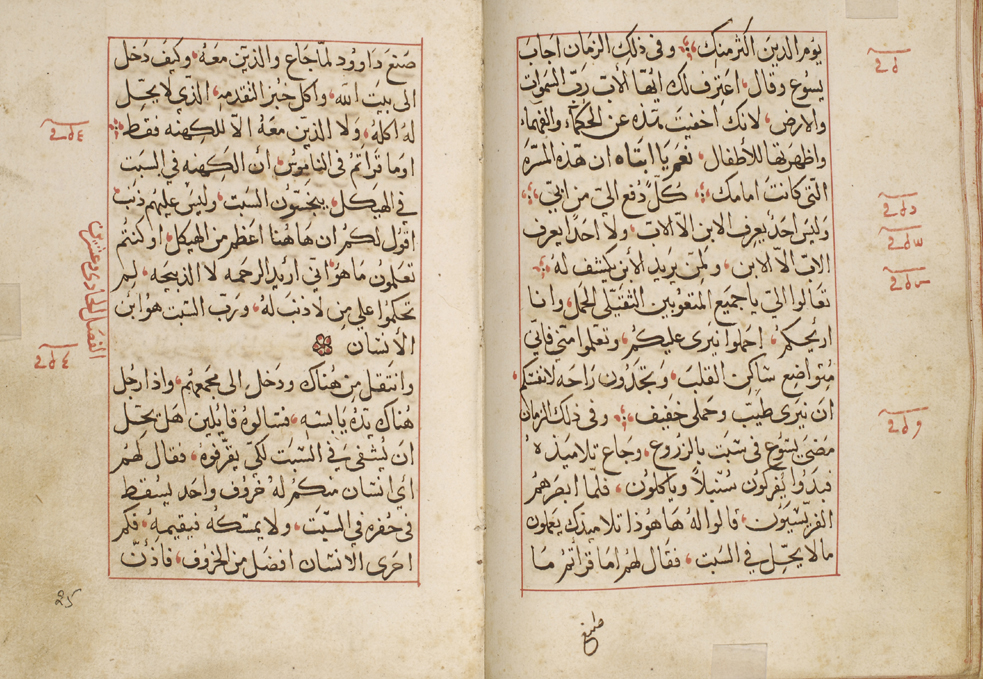 يوم الدين اكثر منك وفي ذلك الزمان اجاب
يسوع وقال اعترف لك ايها الاب رب السموات
والارض لانك اخفيت هذه عن الحكماء والفهماء
واظهرتها للأطفال نعم يا ابتاه ان هذه المسرة
التي كانت امامك كل دُفع الىّ من ابي
وليس احد يعرف الابن الا الاب ولا احدًا يعرف
الاب الا الابن ولمن يريد الابن يكشف له
تعالوا اليّ يا جميع المتعوبين الثقيلى الحمل وانا
اريحكم احملوا نيرى عليكم وتعلموا مني فاني
متواضع ساكن القلب وتجدون راحه لانفسكم
ان نيرى طيب وحملى خفيف وفي ذلك الزمان
مضى يسوع في سبت بالزروع وجاع تلاميذه
فبدوا يفركون سنبلاً وياكلون فلما ابصرهم
الفريسيون قالوا له ها هوذا تلاميذك يعملون
ما لا يحل في السبت فقال لهم اما قراتم ما
صنع داوود لما جاع والذين معه وكيف دخل
الى بيت الله واكل خبز التقدمه الذي لا يحل
له اكله ولا الذين معه الا للكهنه فقط
اوما قراتم في الناموس ان الكهنه في السبت
في الهيكل ينجسون السبت وليس عليهم ذنب
اقول لكم ان هاهنا اعظم من الهيكل لو كنتم
تعلمون ما هو اني اريد الرحمه لا الذبيحه لم
تحكموا علي من لا ذنب له ورب السبت هو ابن
الأنسان
الفصل الحادي وعشرين
وانتقل من هناك ودخل الى مجمعهم واذا رجل
هناك يده يابسه فسالوه قايلين هل يحل
ان يُشفى في السبت لكي يقرفوه فقال لهم
اي انسان منكم له خروف واحد يسقط
في حفره في السبت ولا يمسكه فيقيمه فكم
احرى الانسان افضل من الخروف فاذن
25